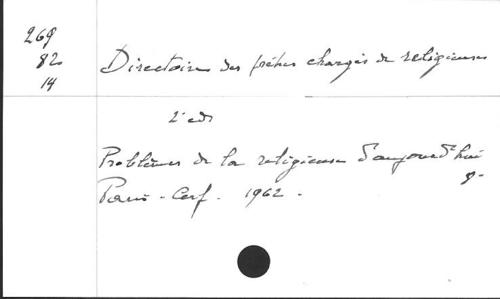 269
82
14
Directoire des prêtres chargés de religieuses
2e ed
Problèmes de la religieuse d'aujourd'hui
Paris - Cerf - 1962 -